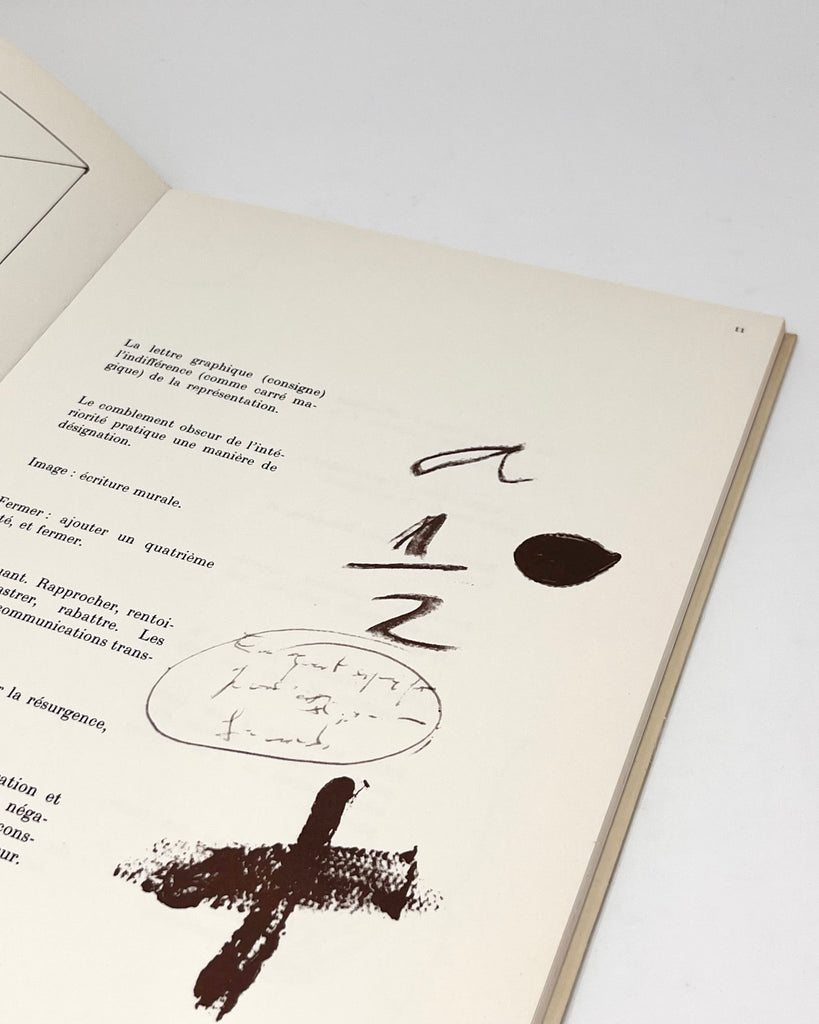 11
La lettre graphique (consigne)
l'indifférence (comme carré ma-
gique) de la représentation.
Le comblement obscur de l'inté-
riorité pratique une manière de
désignation.
Image : écriture murale.
Fermer : ajouter un quatrième
té, et fermer.
uant. Rapprocher, rentoi-
astrer, rabattre. Les
ommunications trans-
r la résurgence,
ation et
néga-
cons-
ur.
a
1
2